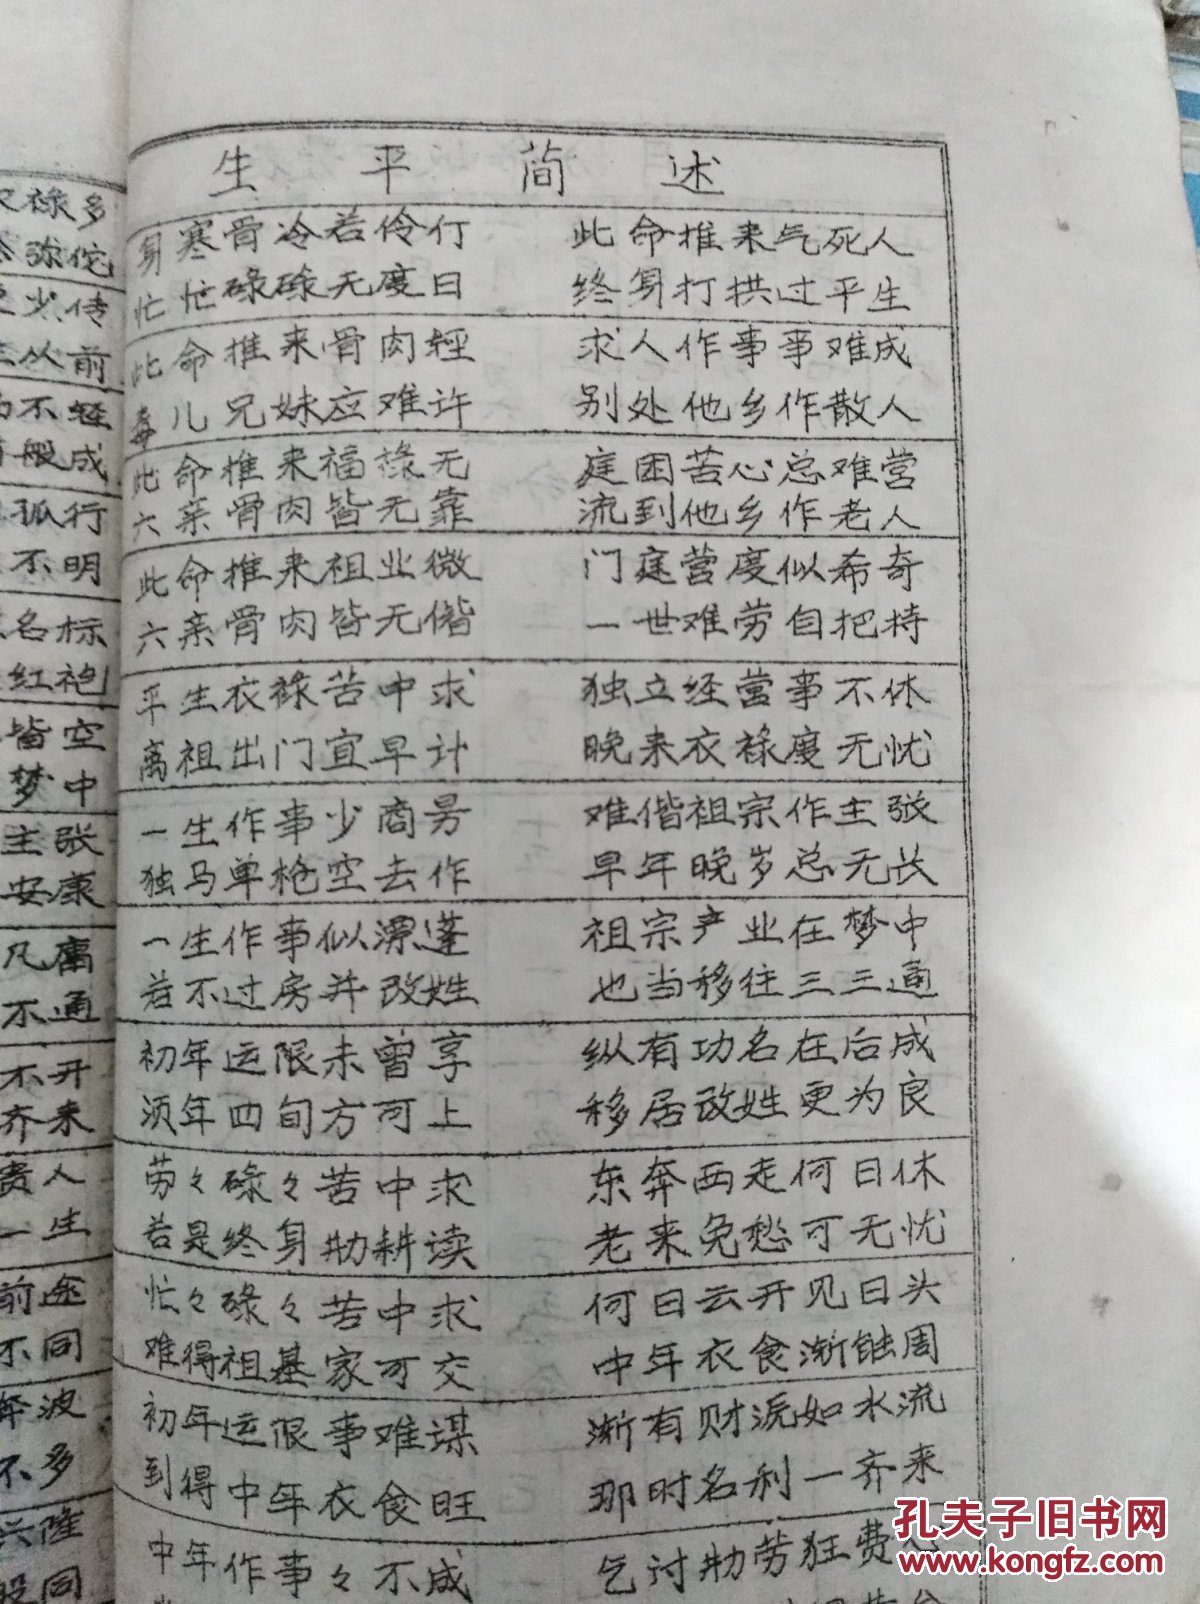 生平简述
身寒骨冷若伶仃 此命推来气死人
忙忙碌碌无度日 终身打拱过平生
此命推来骨肉轻 求人作事事难成
妻儿兄妹应难许 别处他乡作散人
此命推来福禄无 庭困苦心总难营
六亲骨肉皆无靠 流到他乡作老人
此命推来祖业微 门庭营度似希奇
六亲骨肉皆无偕 一世难劳自把持
平生衣禄苦中求 独立经营事不休
离祖出门宜早计 晚来衣禄度无忧
一生作事少商 难偕祖宗作主张
独马单枪空去作 早年晚岁总无长
一生作事似漂蓬 祖宗产业在梦中
若不过房并改姓 也当移往三三通
初年运限未曾享 纵有功名在后成
须年四旬方可上 移居改姓更为良
劳々碌々苦中求 东奔西走何日休
若是终身勤耕读 老来免愁可无忧
忙々碌々苦中求 何日云开见日头
难得祖基家可交 中年衣食渐能周
初年运限事难谋 渐有财源如水流
到得中年衣食旺 那时名利一齐来
中年作事々不成 乞讨勤劳狂费心
禄多
弥佗
少传
从前
不轻
般成
孤行
不明
名标
红袍
皆空
梦中
主张
安康
凡庸
不通
不开
齐来
贵人
一生
前途
不同
奔波
不多
兴隆
同
孔夫子旧书网
www.kongfz.com